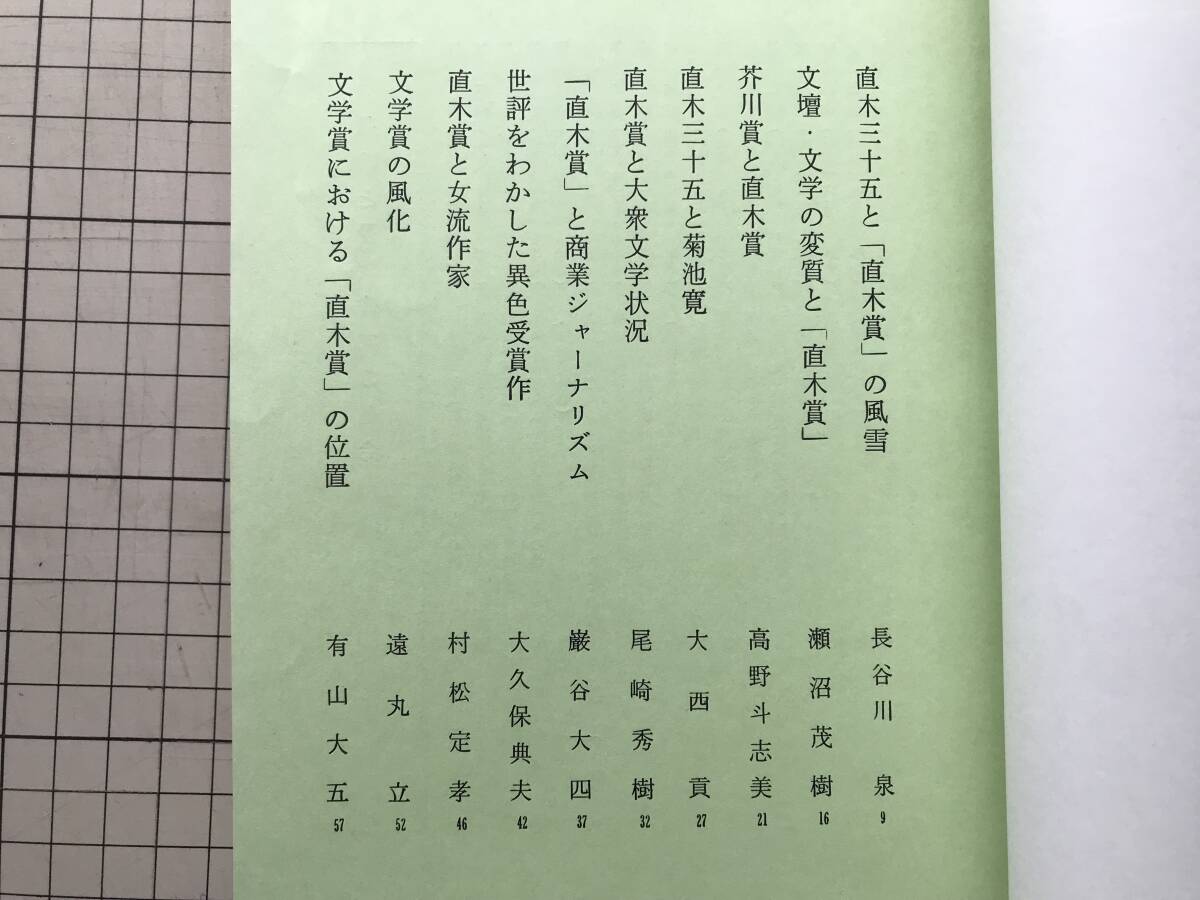 直木三十五と「直木賞」の風雪 長谷川泉 9
文壇・文学の変質と「直木賞」 瀬沼茂樹 16
芥川賞と直木賞 高野斗志美 21
直木三十五と菊池寛 大西貢 27
直木賞と大衆文学状況 尾崎秀樹 32
「直木賞」と商業ジャーナリズム 巌谷大四 37
世評をわかした異色受賞作 大久保典夫 42
直木賞と女流作家 村松定孝 46
文学賞の風化 遠丸立 52
文学賞における「直木賞」の位置 有山大五 57